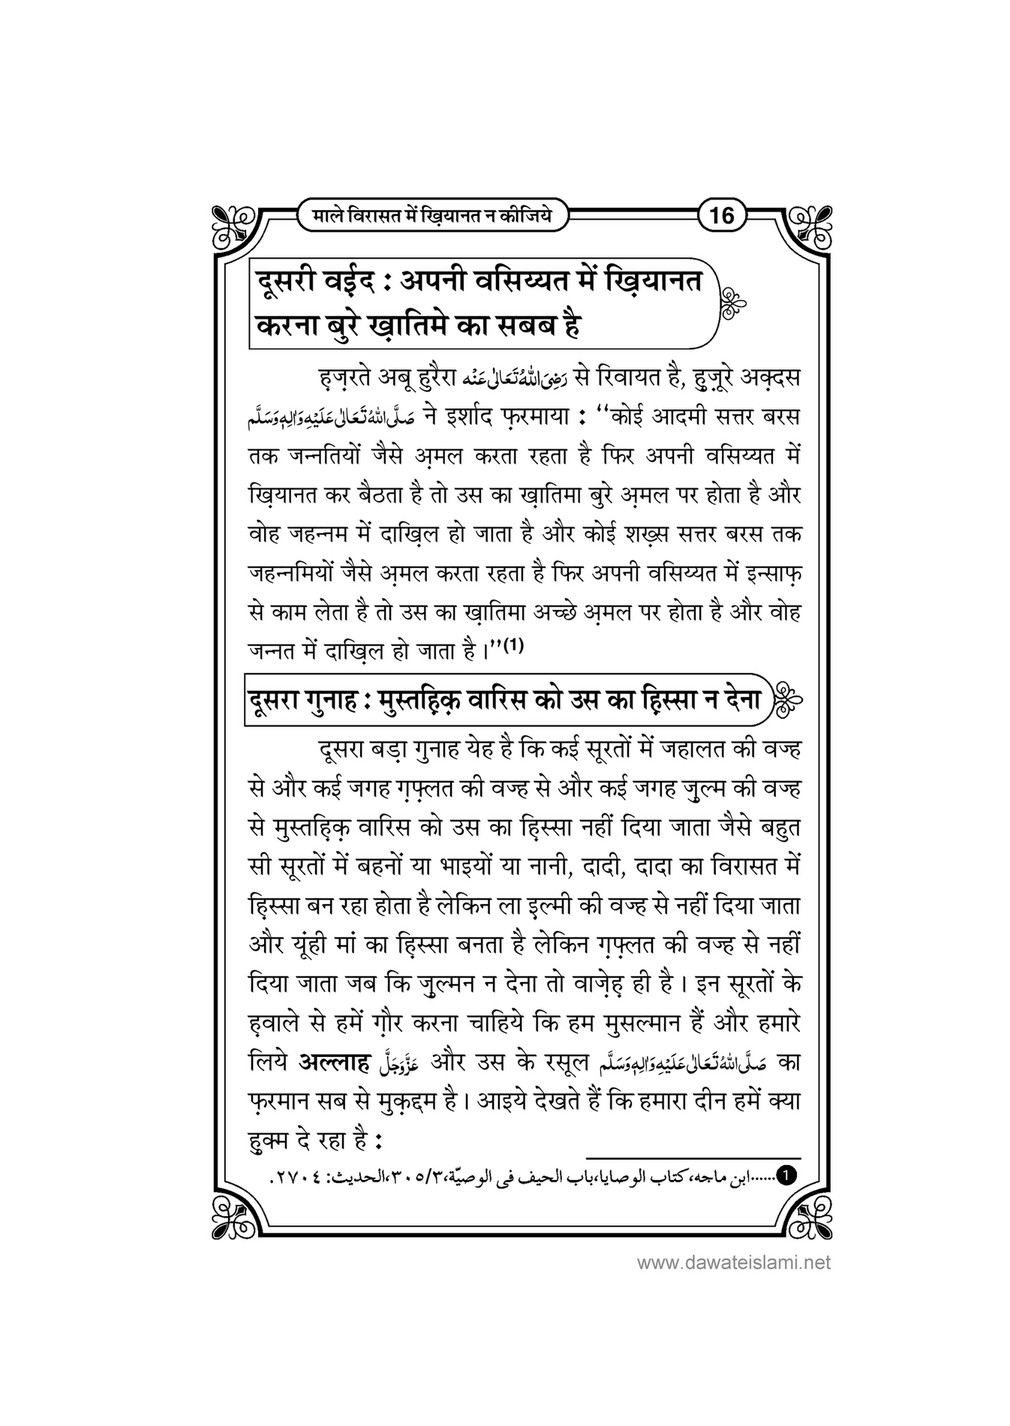 माले विरासत में ख़ियानत न कीजिये
16
दूसरी वईद : अपनी वसिय्यत में ख़ियानत
करना बुरे ख़ातिमे का सबब है
ह़ज़रते अबू हुरैरा رَضِیَ اللہُ تَعَالٰی عَنْہُ से रिवायत है, हुज़ूरे अक़्दस
صَلَّی اللہُ تَعَالٰی عَلَیْہِ وَاٰلِہٖ وَسَلَّم ने इर्शाद फ़रमाया : ‘‘कोई आदमी सत्तर बरस
तक जन्नतियों जैसे अ़मल करता रहता है फिर अपनी वसिय्यत में
ख़ियानत कर बैठता है तो उस का ख़ातिमा बुरे अ़मल पर होता है और
वोह जहन्नम में दाख़िल हो जाता है और कोई शख़्स सत्तर बरस तक
जहन्नमियों जैसे अ़मल करता रहता है फिर अपनी वसिय्यत में इन्साफ़
से काम लेता है तो उस का ख़ातिमा अच्छे अ़मल पर होता है और वोह
जन्नत में दाख़िल हो जाता है ।’’(1)
दूसरा गुनाह : मुस्तह़िक़ वारिस को उस का ह़िस्सा न देना
दूसरा बड़ा गुनाह येह है कि कई सूरतों में जहालत की वज्ह
से और कई जगह ग़फ़्लत की वज्ह से और कई जगह ज़ुल्म की वज्ह
से मुस्तह़िक़ वारिस को उस का ह़िस्सा नहीं दिया जाता जैसे बहुत
सी सूरतों में बहनों या भाइयों या नानी, दादी, दादा का विरासत में
ह़िस्सा बन रहा होता है लेकिन ला इ़ल्मी की वज्ह से नहीं दिया जाता
और यूंही मां का ह़िस्सा बनता है लेकिन ग़फ़्लत की वज्ह से नहीं
दिया जाता जब कि ज़ुल्मन न देना तो वाज़ेह़ ही है । इन सूरतों के
ह़वाले से हमें ग़ौर करना चाहिये कि हम मुसल्मान हैं और हमारे
लिये अल्लाह عَزَّوَجَلَّ और उस के रसूल صَلَّی اللہُ تَعَالٰی عَلَیْہِ وَاٰلِہٖ وَسَلَّم का
फ़रमान सब से मुक़द्दम है । आइये देखते हैं कि हमारा दीन हमें क्या
हुक्म दे रहा है :
1......ابن ماجہ، کتاب الوصایا، باب الحیف فی الوصیّة، ٣/٣٠٥، الحدیث: ٢٧٠٤.
www.dawateislami.net